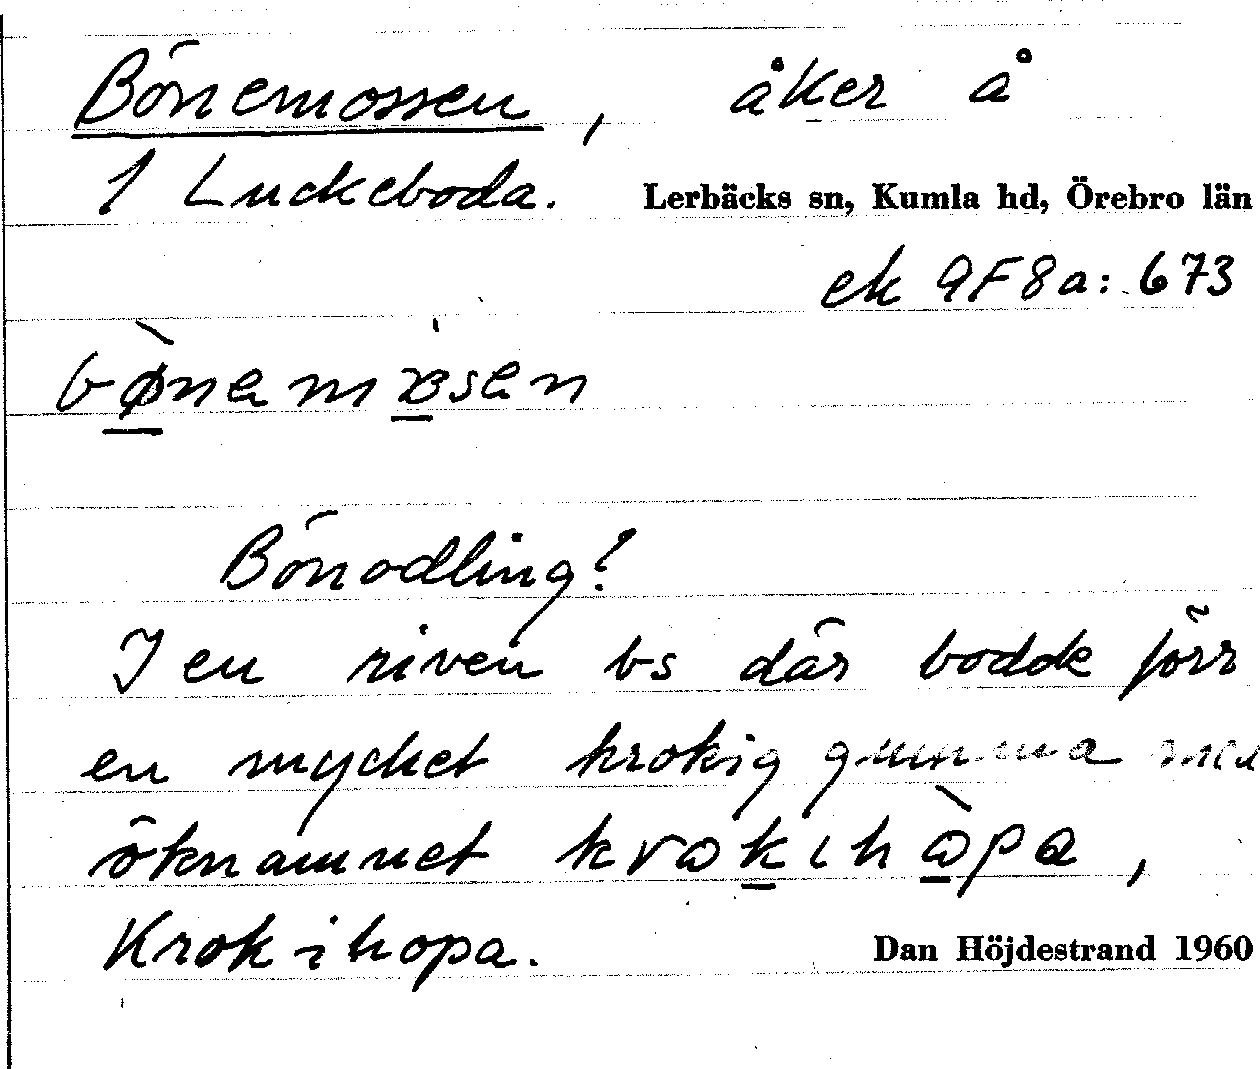 Bönemossen, åker å
1 Luckeboda. Lerbäcks sn, Kumla hd, Örebro län
ek 9F8a: 673
bø̀nemɷ̀sen
Bönodling?
I en riven bs där bodde förr
en mycket krokig gumma
öknamnet krokihòpa,
Krokihopa. Dan Höjdestrand 1960